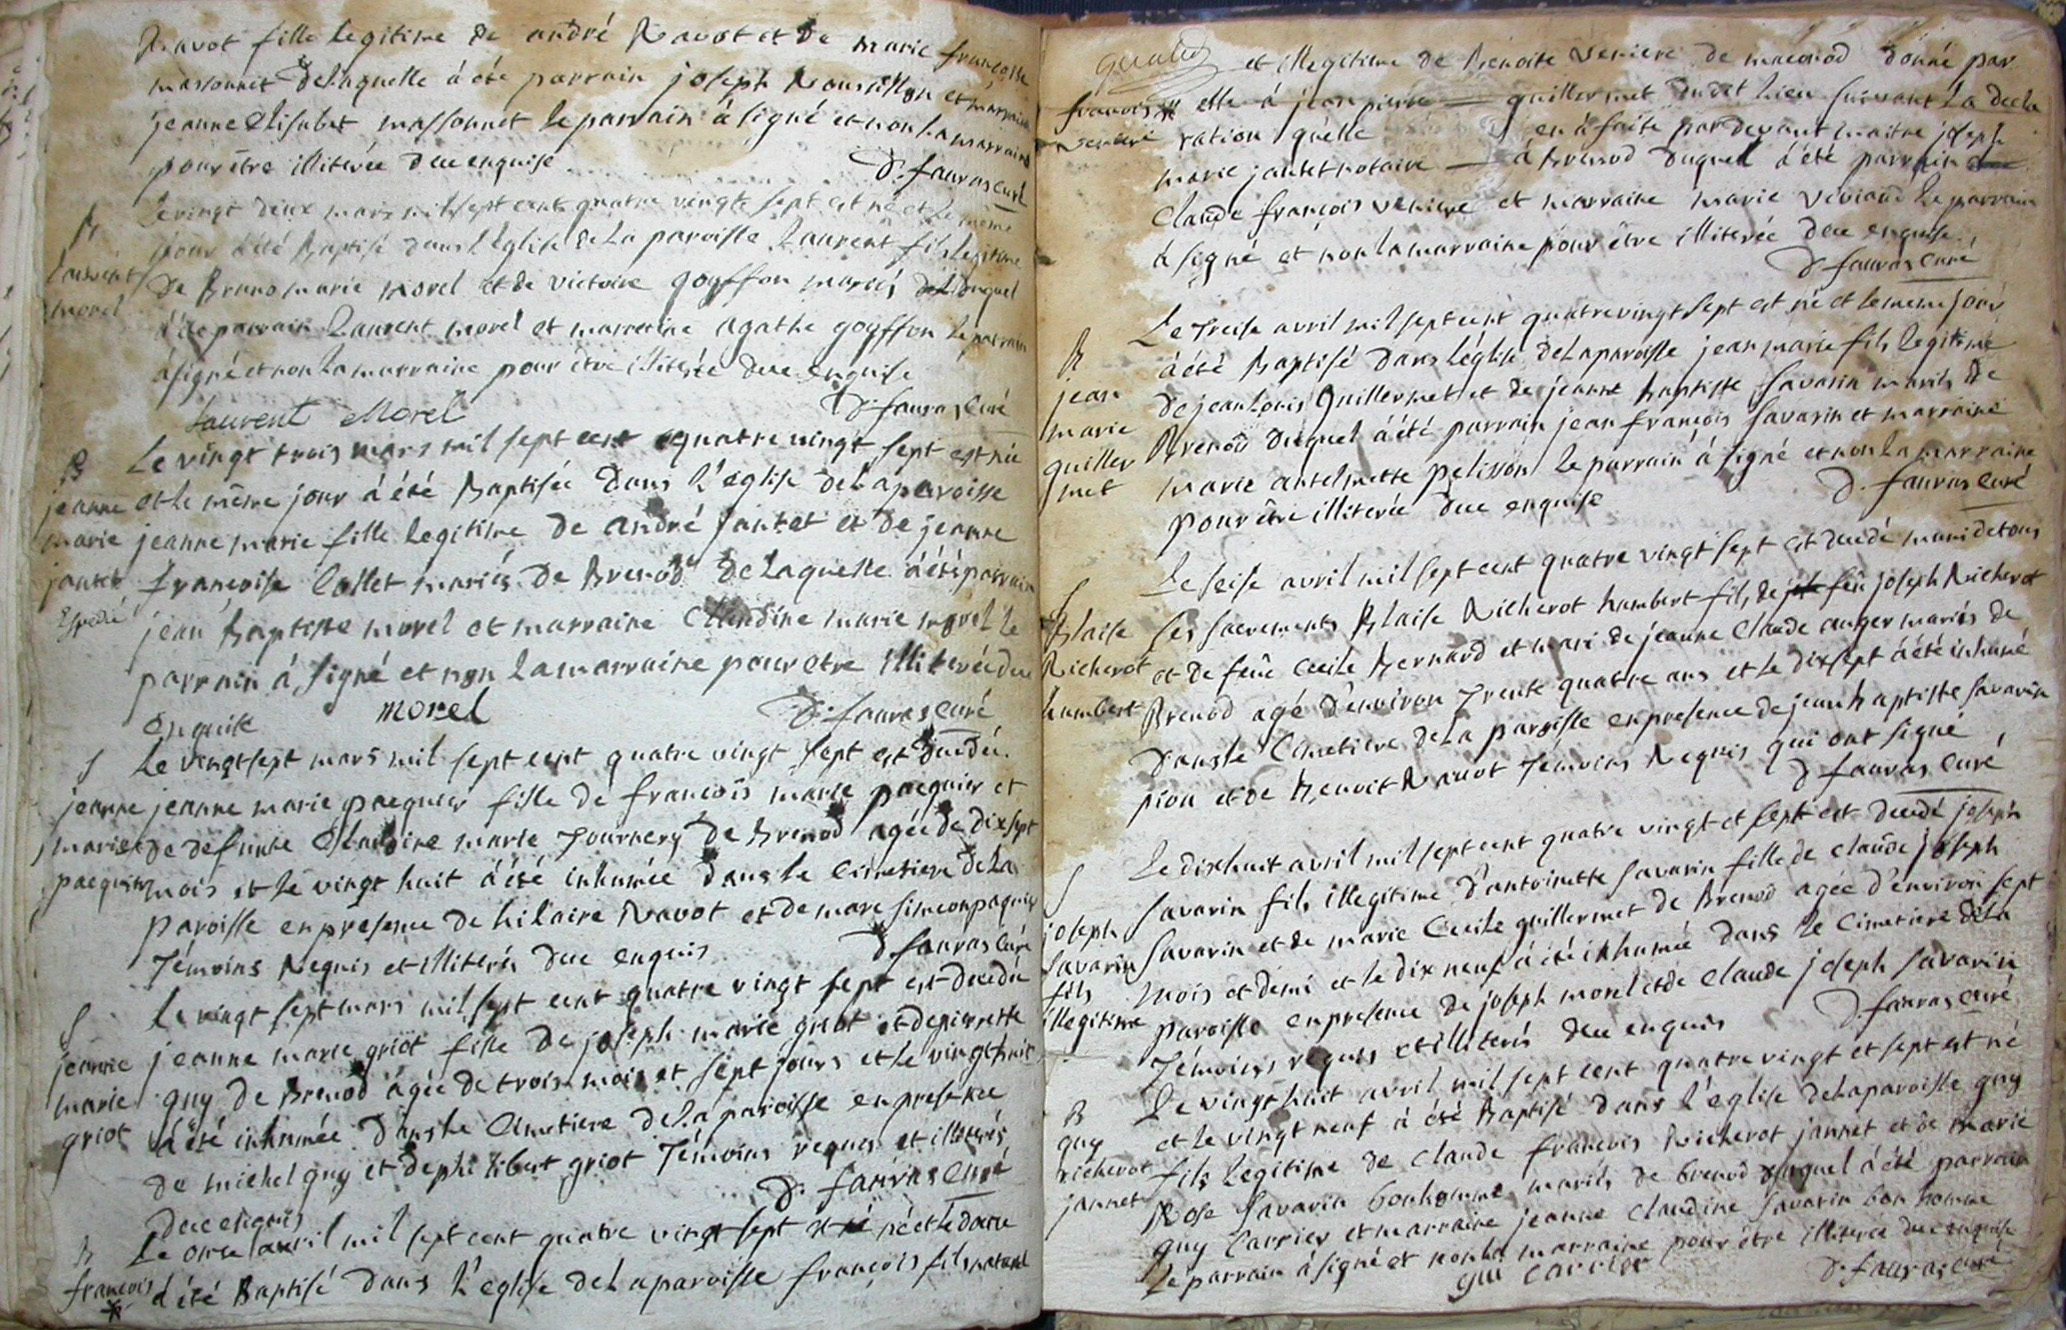 Ravot fille legitime de andré Ravot et de marie françoise
massonnet delaquelle à été parrain joseph Roussillon et marraine
jeanne Elisabet massonnet le parrain à signé et non la marraine
pour être illiterée due enquise
D. fauvas curé
B
Laurent
morel
Le vingt deux mars mil sept cent quatre vingt sept est né et le même
jour à été Baptisé dans l'église de la paroisse Laurent fils legitime
de Bruno marie morel et de victoire goyffon mariés duquel
à été parrain Laurent morel et marraine agathe goyffon le parrain
à signé et non la marraine pour être illiterée due enquise
Laurent Morel D. fauvas curé
B
jeanne
marie
jantet
Expedié
Le vingt trois mars mil sept cent quatre vingt sept est née
et le même jour à été Baptisée dans l'église de la paroisse
jeanne marie fille legitime de andré jantet et de jeanne
françoise Collet mariés de Brenod delaquelle à été parrain
jean Baptiste morel et marraine Claudine marie morel le
parrain à signé et non la marraine pour etre illiterée due
enquise morel D. fauvas curé
S
jeanne
marie
pacquier
Le vingt sept mars mil sept cent quatre vingt sept est decedée
jeanne marie pacquier fille de françois marie pacquier et
de defunte Claudine marie Tournery de Brenod agée de dix sept
mois et le vingt huit à été inhumée dans le Cimetiere de la
paroisse en presence de hilaire Ravot et de marc simeon paquier
Témoins Requis et illiterés due enquis D. fauvas curé
S
jeanne
marie
griot
Le vingt sept mars mil sept cent quatre vingt sept est decedée
jeanne marie griot fille de joseph marie griot et de pierrette
guy de Brenod agée de trois mois et sept jours et le vingt huit
à été inhumée dans le Cimetiere de la paroisse en presence
de michel guy et de philibert griot Témoins requis et illiterés
due enquis D. fauvas curé
B
françois
*
Le onze avril mil sept cent quatre vingt sept est né et le douze
à été Baptisé dans l'église de la paroisse françois fils naturel
françois *
veniere
et illegitime de Benoite veniere de macconod donné par
elle à jean pierre — guillermet dudit lieu suivant la decla
ration qu'elle en à faite pardevant maitre joseph
marie jantet notaire — à Brenod duquel à été parrain
Claude françois veniere et marraine marie viviand le parrain
à signé et non la marraine pour être illiterée due enquise
D. fauvas curé
B
jean
marie
guiller
met
Le Treise avril mil sept cent quatre vingt sept est né et le meme jour
à été Baptisé dans l'église de la paroisse jean marie fils legitime
de jean Louis guillermet et de jeanne Baptiste Savarin mariés de
Brenod duquel à été parrain jean françois Savarin et marraine
marie antelmette pelisson le parrain à signé et non la marraine
pour être illiterée due enquise D. fauvas curé
S
Blaise
Richerot
humbert
Le seise avril mil sept cent quatre vingt sept est decedé muni de tous
les sacrements Blaise Richerot humbert fils de feu joseph Richerot
et de feue Cecile Bernard et mari de jeanne Claude auger mariés de
Brenod agé d'environ Trente quatre ans et le dix sept à été inhumé
dans le Cimetiere de la paroisse en presence de jean Baptiste Savarin
pion et de Benoit Ravot Témoins Requis qui ont signé
D fauvas curé
S
joseph
Savarin
fils
illegitime
Le dix huit avril mil sept cent quatre vingt et sept est decedé joseph
Savarin fils illegitime d'antoinette Savarin fille de claude joseph
Savarin et de marie Cecile guillermet de Brenod agée d'environ sept
mois et demi et le dix neuf à été inhumée dans le Cimetiere de la
paroisse en presence de joseph morel et de Claude joseph Savarin
Témoins requis et illiterés due enquis D fauvas curé
B
guy
richerot
jannet
Le vingt huit avril mil sept cent quatre vingt et sept est né
et le vingt neuf à été Baptisé dans l'église de la paroisse guy
fils legitime de Claude françois Richerot jannet et de marie
Rose Savarin bonhomme mariés de brenod duquel à été parrain
guy Carrier et marraine jeanne Claudine Savarin bon homme
Le parrain à signé et non la marraine pour être illiterée due enquise
gui carrier D. fauvas curé